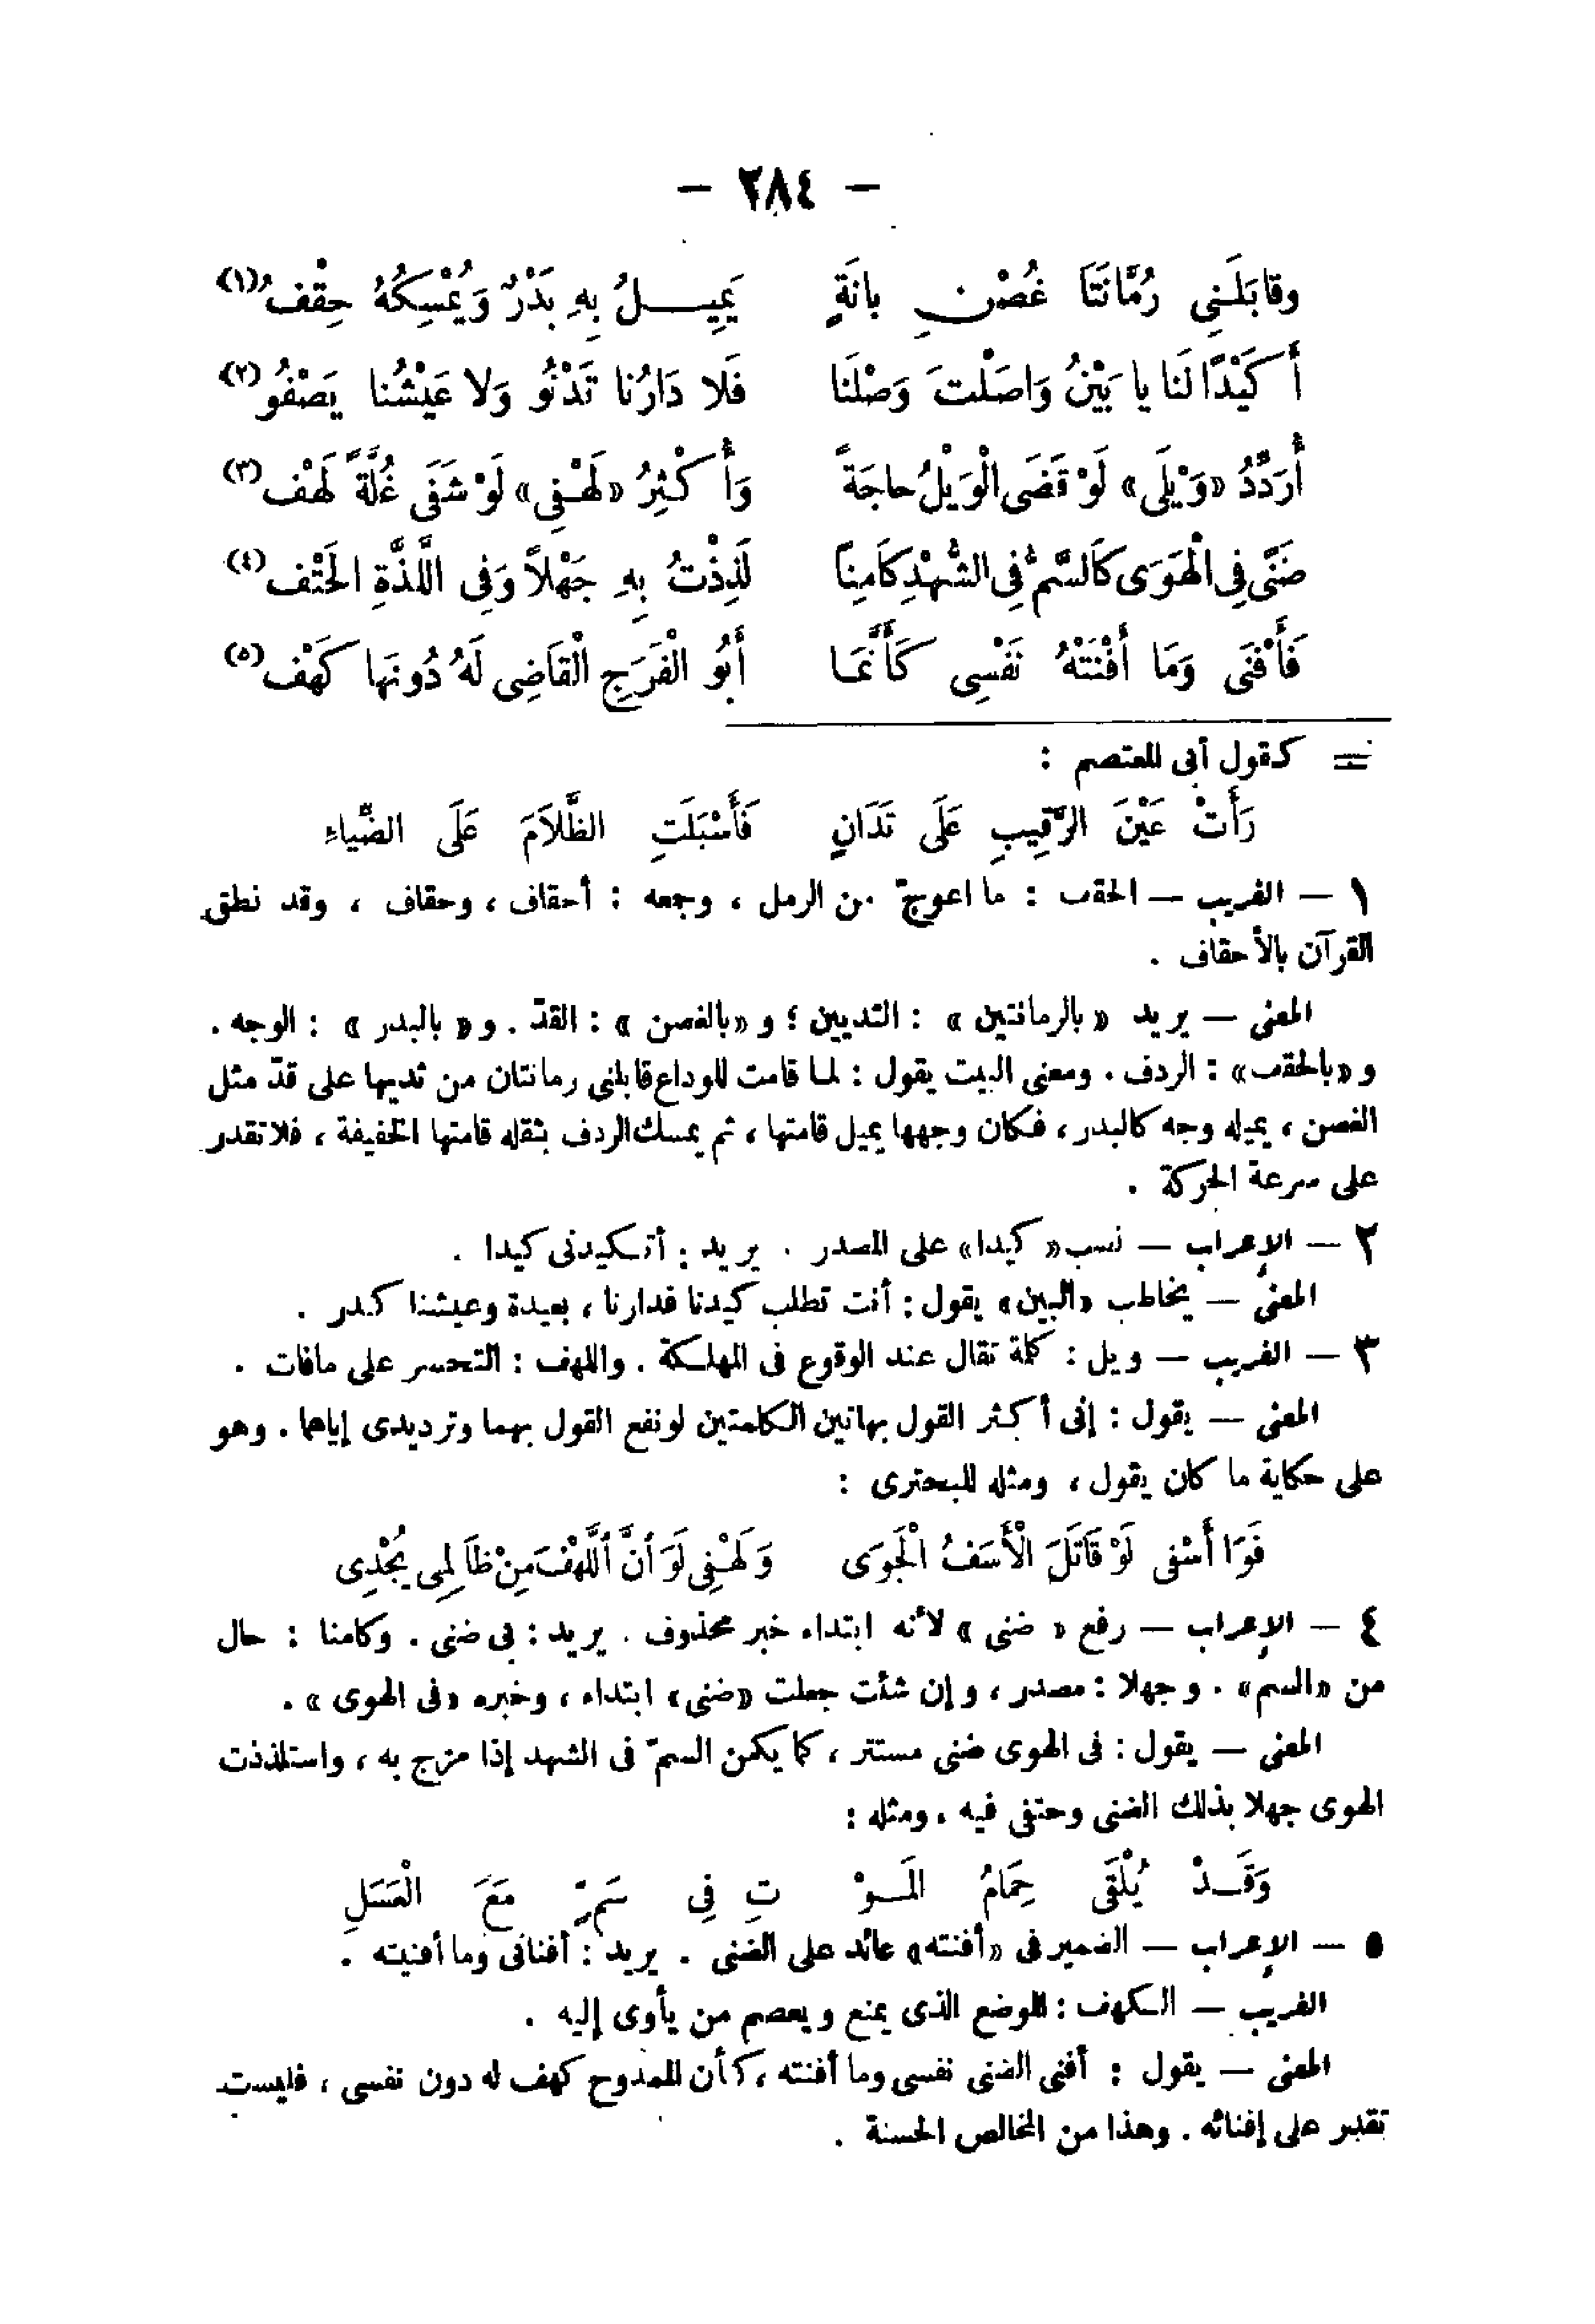 — ٢٨٤ —
وقابَلَنِى رُمَّانَتَا غُصْنِ بانَةٍ يَمِيلُ بِهِ بَدْرٌ وَيُمْسِكُهُ حِقْفُ(١)
أَكَيْدًا لَنَا يا بَيْنُ وَاصَلْتَ وَصْلَنَا فَلا دَارُنا تَدْنُو وَلا عَيْشُنا يَصْفُو(٢)
أُرَدِّدُ «وَيْلَى» لَوْ قَضَى الْوَيْلُ حاجَةً وَأُكْثِرُ «لَهْفِى» لَوْ شَفَى غُلَّةً لَهْف(٣)
ضَنًى فِى الْهَوَى كَالسُّمِّ فِى الشُّهْدِ كَامِنًا لَذِذْتُ بِهِ جَهْلاً وَفِى اللَّذَّةِ الحَتْف(٤)
فَأَفْنَى وَمَا أَفْنَتْهُ نَفْسِى كَأَنَّمَا أَبُو الْفَرَجِ الْقَاضِى لَهُ دُونَها كَهْف(٥)
= كقول أبى المعتصم :
رَأَتْ عَيْنَ الرَّقِيبِ عَلَى تَدَانٍ فَأَسْبَلَتِ الظَّلاَمَ عَلَى الضِّياءِ
١ — الغريب — الحقف : ما اعوجّ من الرمل ، وجمعه : أحقاف ، وحقاف ، وقد نطق
القرآن بالأحقاف .
المعنى — يريد « بالرمانتين » : الثديين ؛ و «بالغصن » : القدّ . و« بالبدر » : الوجه .
و «بالحقف» : الردف . ومعنى البيت يقول : لما قامت للوداع قابلنى رمانتان من ثديها على قدّ مثل
الغصن ، يميله وجه كالبدر ، فكان وجهها يميل قامتها ، ثم يمسك الردف بثقله قامتها الخفيفة ، فلا تقدر
على سرعة الحركة .
٢ — الإعراب — نسب« كيدا» على المصدر . يريد : أتكيدنى كيدا .
المعنى — يخاطب «البين» يقول : أنت تطلب كيدنا فدارنا ، بعيدة وعيشنا كدر .
٣ — الغريب — ويل : كلمة تقال عند الوقوع فى المهلكة . واللهف : التحسر على مافات .
المعنى — يقول : إنى أكثر القول بهاتين الكلمتين لو نفع القول بهما وترديدى إياهما . وهو
على حكاية ما كان يقول ، ومثله للبحترى :
فَوَا أَسَفِى لَوْ قَاتَلَ الْأَسَفُ الْجَوَى وَلَهْفِى لَوَ أنَّ اللَّهْفَ مِنْ ظَالِمِى يُجْدِى
٤ — الإعراب — رفع « ضنى » لأنه ابتداء خبر محذوف . يريد : بى ضنى . وكامنا : حال
من «السم» . وجهلا : مصدر ، وإن شئت جعلت «ضنى» ابتداء ، وخبره «فى الهوى » .
المعنى — يقول : فى الهوى ضنى مستتر ، كما يكمن السمّ فى الشهد إذا مزج به ، واستلذذت
الهوى جهلا بذلك الضنى وحتفى فيه . ومثله :
وَقَدْ يُلْقَى حِمَامُ المَوْ تِ فِى سَمٍّ مَعَ الْعَسَلِ
٥ — الإعراب — الضمير فى «أفنته» عائد على الضنى . يريد : أفنانى وما أفنيته .
الغريب — الكهف : الموضع الذى يمنع ويعصم من يأوى إليه .
المعنى — يقول : أفنى الضنى نفسى وما أفنته ، كأن الممدوح كهف له دون نفسى ، فليست
تقدر على إفنائه . وهذا من المخالص الحسنة .